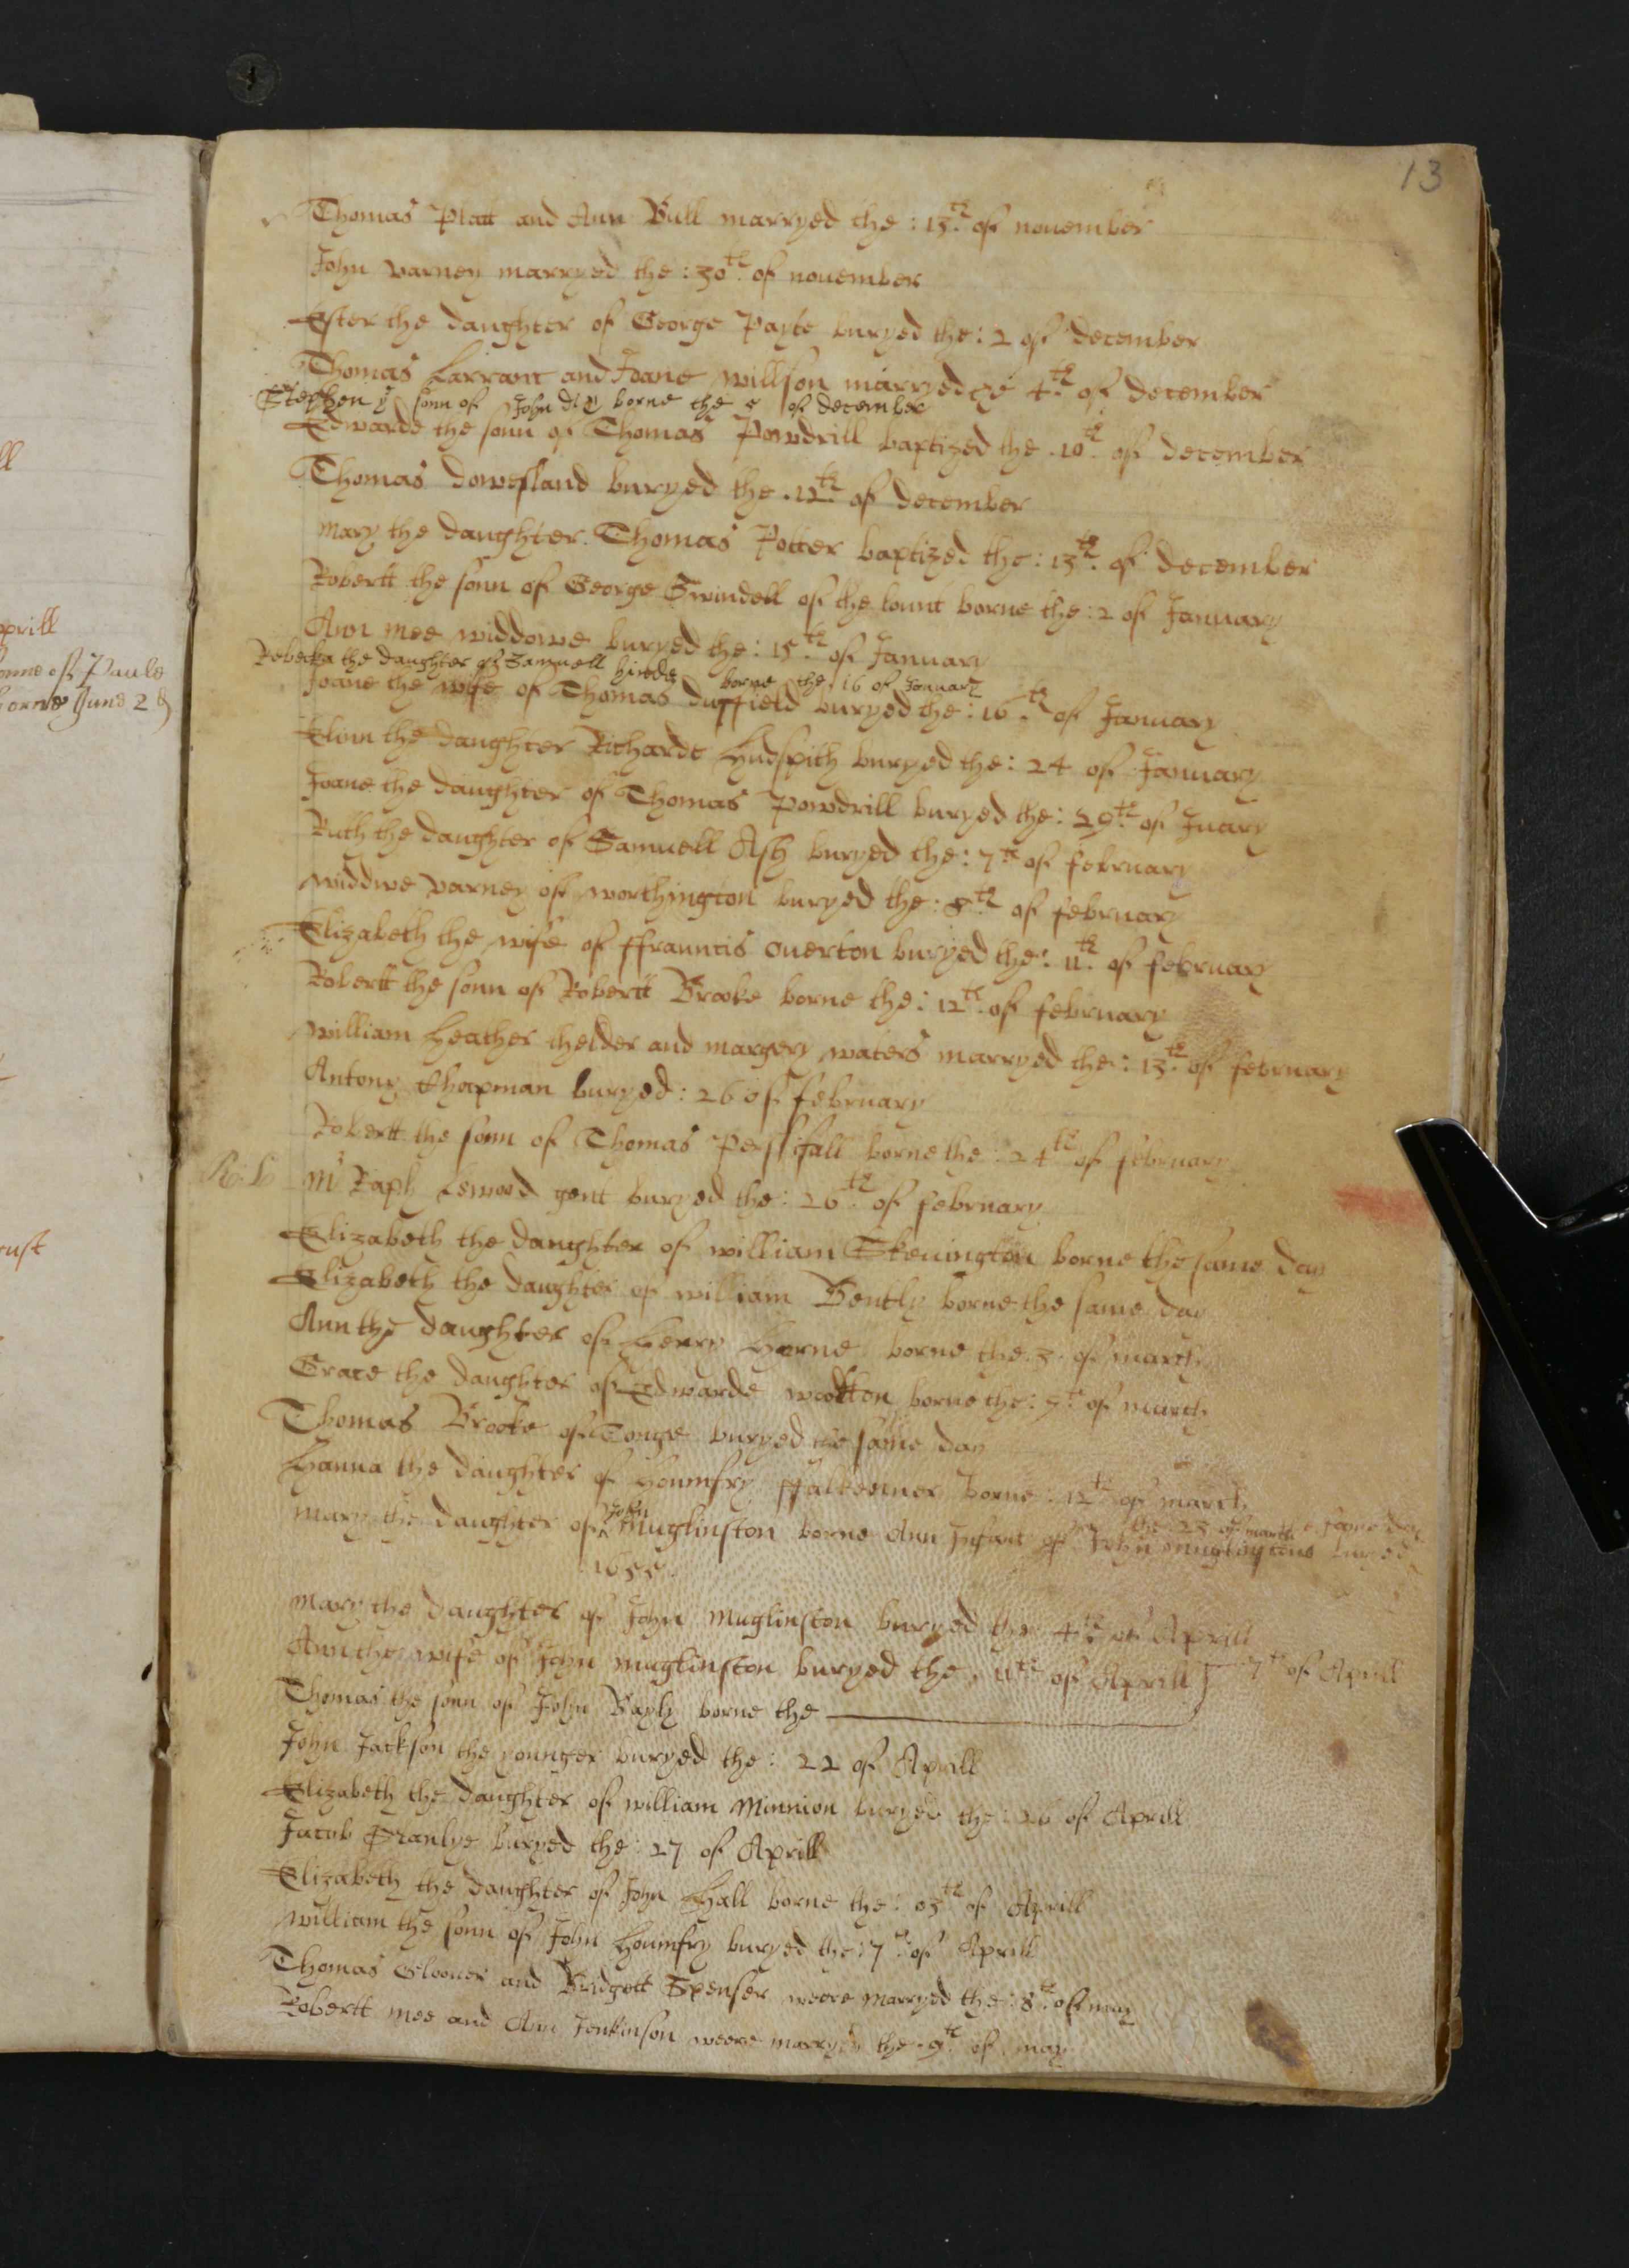 13
Thomas Platt and Ann Bull marryed the : 13th of nouember
John varney marryed the : 30th of nouember
Ester the daughter of George Payte buryed the : 2 of december
Thomas Larrant and Joane willson marryed the 4th of december
Stephen ye sonn of John borne the 5 of december
Edwarde the sonn of Thomas Powdrill baptized the . 10th of december
Thomas dowesland buryed the . 12th of december
mary the daughter Thomas Potter baptized the : 13th of december
Robertt the sonn of George Swindell of the lount borne the : 2 of January
Ann mee widdowe buryed the : 15th of January
Rebecka the daughter of Samuell hirede borne the 16 of January
Joane the wife of Thomas duffield buryed the : 16th of January
the daughter Richarde buryed the : 24 of January
Joane the daughter of Thomas Powdrill buryed the : 29th of Juary
Ruth the daughter of Samuell Ash buryed the : 7th of february
widdwe varney of worthington buryed the : 8th of february
Elizabeth the wife of ffrauncis ouerton buryed the : 11th of february
Robertt the sonn of Robertt Brooke borne the : 12th of february
william heather thelder and margery waters marryed the : 13th of february
Antony Chapman buryed : 26 of february
Robertt the sonn of Thomas Perssifall borne the : 24th of february
R : L Mr Raph Lewood gent buryed the : 26th of february
Elizabeth the daughter of william Skeuington borne the same day
Elizabeth the daughter of william Bently borne the same day
Ann the daughter of Henry Horne borne the . 3 . of march
Grace the daughter of Edwarde wootton borne the : 9th of march
Thomas Brooke of Tonge buryed the same day
Hanna the daughter of Houmfry ffalkenner borne : 12th of march
mary the daughter of John Muglinston borne the 23 of march Ann Infant of John muglingtone buryed the same day
1655
mary the daughter of John Muglinston buryed the 4th of Aprill
Ann the wife of John muglinston buryed the . 11th of Aprill
Thomas the sonn of John Bayly borne the 7th of Aprill
John Jackson the younger buryed the : 22 of Aprill
Elizabeth the daughter of william Minnion buryed the : 26 of Aprill
Jacob buryed the : 27 of Aprill
Elizabeth the daughter of John Hall borne the : 03th of Aprill
william the sonn of John Houmfry buryed the : 7th of Aprill
Thomas Gloouer and Bridgett Spenser weere marryed the : 8th of may
Robertt mee and Ann Jenkinson weere marryed the . 9th of may